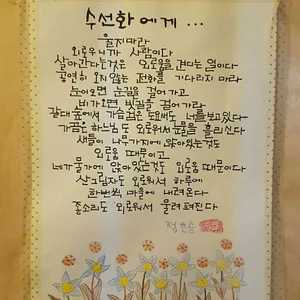 수선화에게 ...
울지마라
외로우니까 사람이다
살아간다는것은 외로움을 견디는 일이다
공연히 오지 않는 전화를 기다리지 마라
눈이오면 눈길을 걸어가고
비가오면 빗길을 걸어가라
갈대 숲에서 가슴검은 도요새도 너를보고있다
가끔은 하느님도 외로워서 눈물을 흘리신다
새들이 나무가지에 앉아있는것도
외로움 때문이고
네가 물가에 앉아있는것도 외로움 때문이다
산그림자도 외로워서 하루에
한번씩 마을에 내려온다
종소리도 외로워서 울려퍼진다